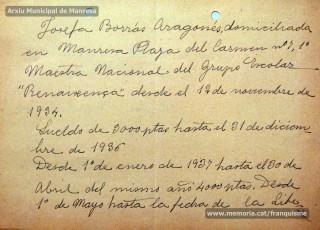 Arxiu Municipal de Manresa
Josefa Borrás Aragonés, domiciliada
en Manresa Plaza del Carmen nº 7, 1º
Maestra Nacional del Grupo Escolar
"Renaixença" desde el 13 de noviembre de
1934.
Sueldo de 3000 ptas hasta el 31 de diciem
bre de 1936
Desde 1º de enero de 1937 hasta el 30 de
Abril del mismo año 4000 ptas. Desde
1º de Mayo hasta la fecha de la Libe
www.memoria.cat/franquisme